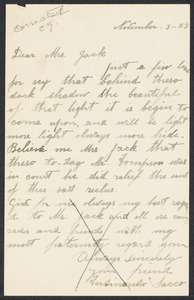 corrected
November - 3 - 23
Dear Mrs. Jack
just a few line
for say that behind thero
dark shadow the beautiful
of that light it is begin to
come upon, and will be light
more light always more
Believe me Mrs Jack that
thero to-day Mr. Thompson was
in court he did relief the
of this sad
for me always my best
to Mr. Jack and all
and friends with my
most fraternity regard your
Always sincerely
your friend
Ferdinando Sacco